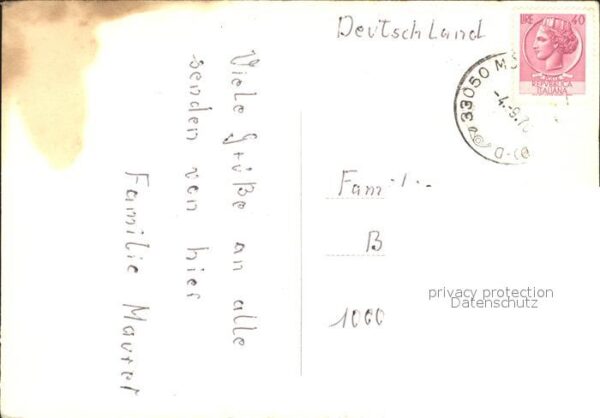 Deutschland
LIRE 40
REPUBBLICA
ITALIANA
33050 M
-4.-9.7
Viele Grüße an alle
senden von hier
Familie Maurer
Famili
B
1000
privacy protection
Datenschutz